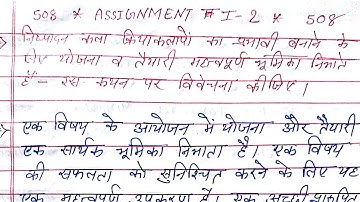 508 * ASSIGNMENT # I-2 * 508
निष्पादन कला क्रियाकलापों का प्रभावी बनाने के
लिए योजना व तैयारी महत्वपूर्ण भूमिका निभाते
हैं - इस कथन पर विवेचना कीजिए।
एक विषय के आयोजन में योजना और तैयारी
एक सार्थक भूमिका निभाता है। एक विषय
की सफलता को सुनिश्चित करने के लिए यह
एक महत्वपूर्ण उपकरण है। एक अच्छी